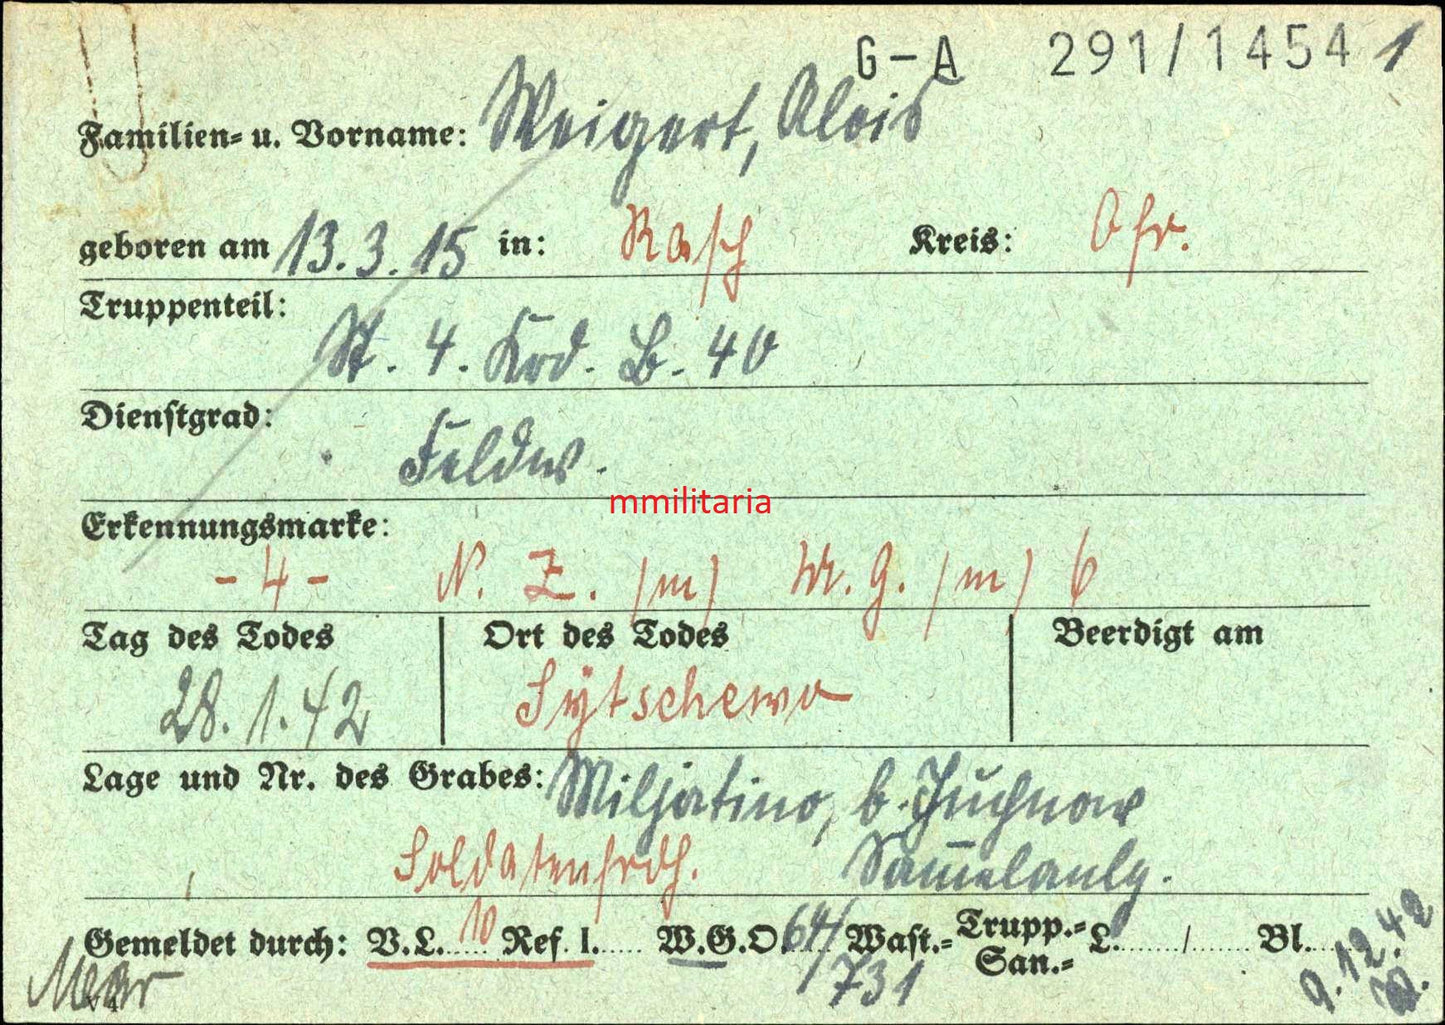 G-A 291/1454 1
Familien- u. Vorname: Weigert, Alois
geboren am 13.3.15 in: Rasch Kreis: Ofr.
Truppenteil:
St. 4. Krd. B. 40
Dienstgrad:
Feldw.
mmilitaria
Erkennungsmarke:
- 4 - N. Z. (m) Kr. G. (m) 6
Tag des Todes Ort des Todes Beerdigt am
28.1.42 Sytschewo
Lage und Nr. des Grabes: Miljatino, b. Juchnow
Soldatenfrdh. Sammelanlg.
Gemeldet durch: V.L. 10 Ref. 1. W.G.O. 64/ Wast.- Trupp.- San.- L. / Bl.
731
9.12.42